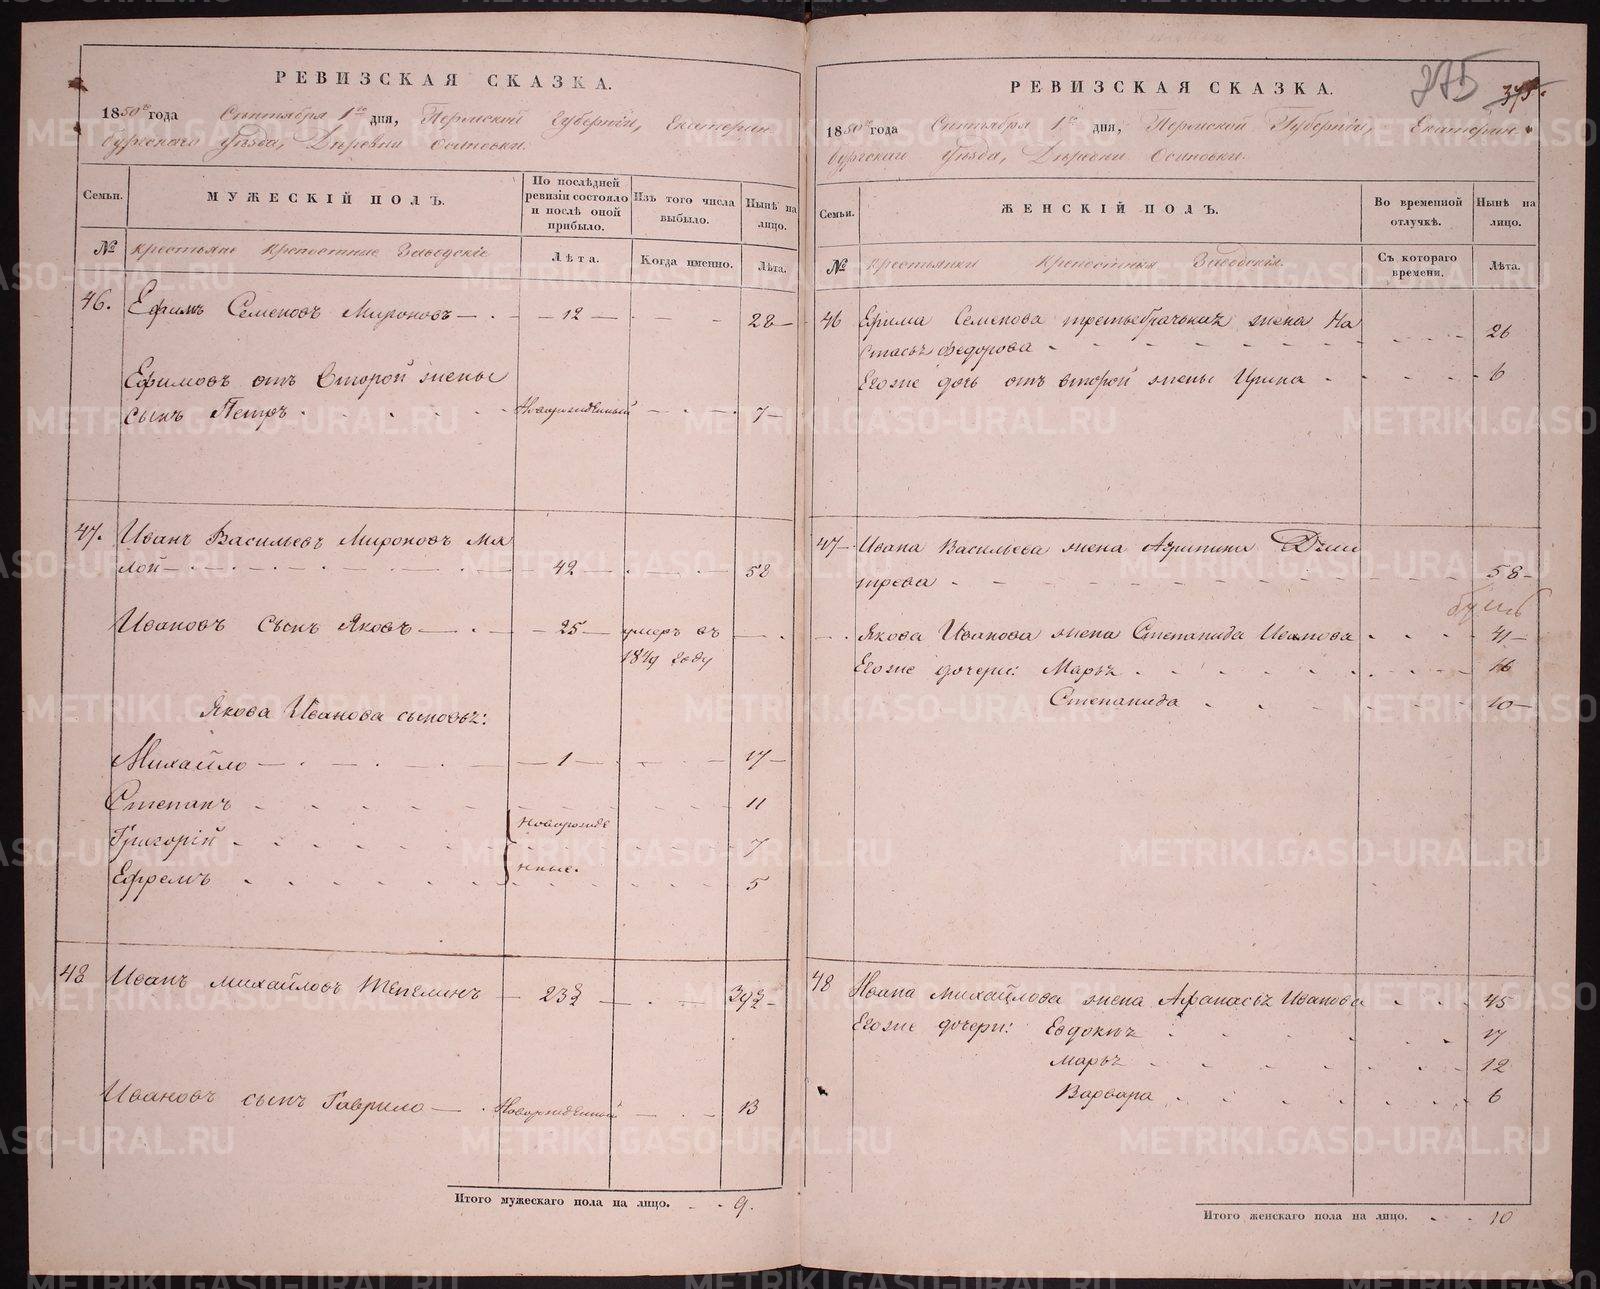 РЕВИЗСКАЯ СКАЗКА.
1850го года Сентября 1го дня, Пермской Губернiи, Екатерин
бургскаго Уѣзда, Деревни Осиновки.
Семьи. МУЖЕСКIЙ ПОЛЪ. По послѣдней ревизiи состояло и послѣ оной прибыло. Изъ того числа выбыло. Нынѣ на лицо.
№ Крестьяне Крепостные Заводскiе Лѣта. Когда именно. Лѣта.
46. Ефимъ Семеновъ Мироновъ 12 28
Ефимовъ отъ второй жены
сынъ Петръ Новорожденный 7
47. Иванъ Васильевъ Мироновъ Ма
лой 42 58
Ивановъ сынъ Яковъ 25 умеръ въ
1849 году
Якова Иванова сыновья:
Михайло 1 17
Степанъ 11
Новорожде
Григорiй 7
нные.
Ефремъ 5
48 Иванъ Михайловъ 23½ 39½
Ивановъ сынъ Гаврило Новорожденный 13
Итого мужескаго пола на лицо. 9.
РЕВИЗСКАЯ СКАЗКА.
375
375.
1850го года Сентября 1го дня, Пермской Губернiи, Екатерин
бургскаго Уѣзда, Деревни Осиновки.
Семьи. ЖЕНСКIЙ ПОЛЪ. Во временной отлучкѣ. Нынѣ на лицо.
№ Крестьянки Крепостныя Заводскiя. Съ котораго времени. Лѣта.
46 Ефима Семенова третьебрачная жена На
стасья Федорова 26
Егоже дочь отъ второй жены Ирина 6
47 Ивана Васильева жена Агрипина Дми
трева 58
Якова Иванова жена Степанида Иванова 41
Егоже дочери: Марья 16
Степанида 10
48 Ивана Михайлова жена Афанасья Иванова 45
Егоже дочери: Евдокья 17
Марья 12
Варвара 6
Итого женскаго пола на лицо. 10
METRIKI.GASO-URAL.RU